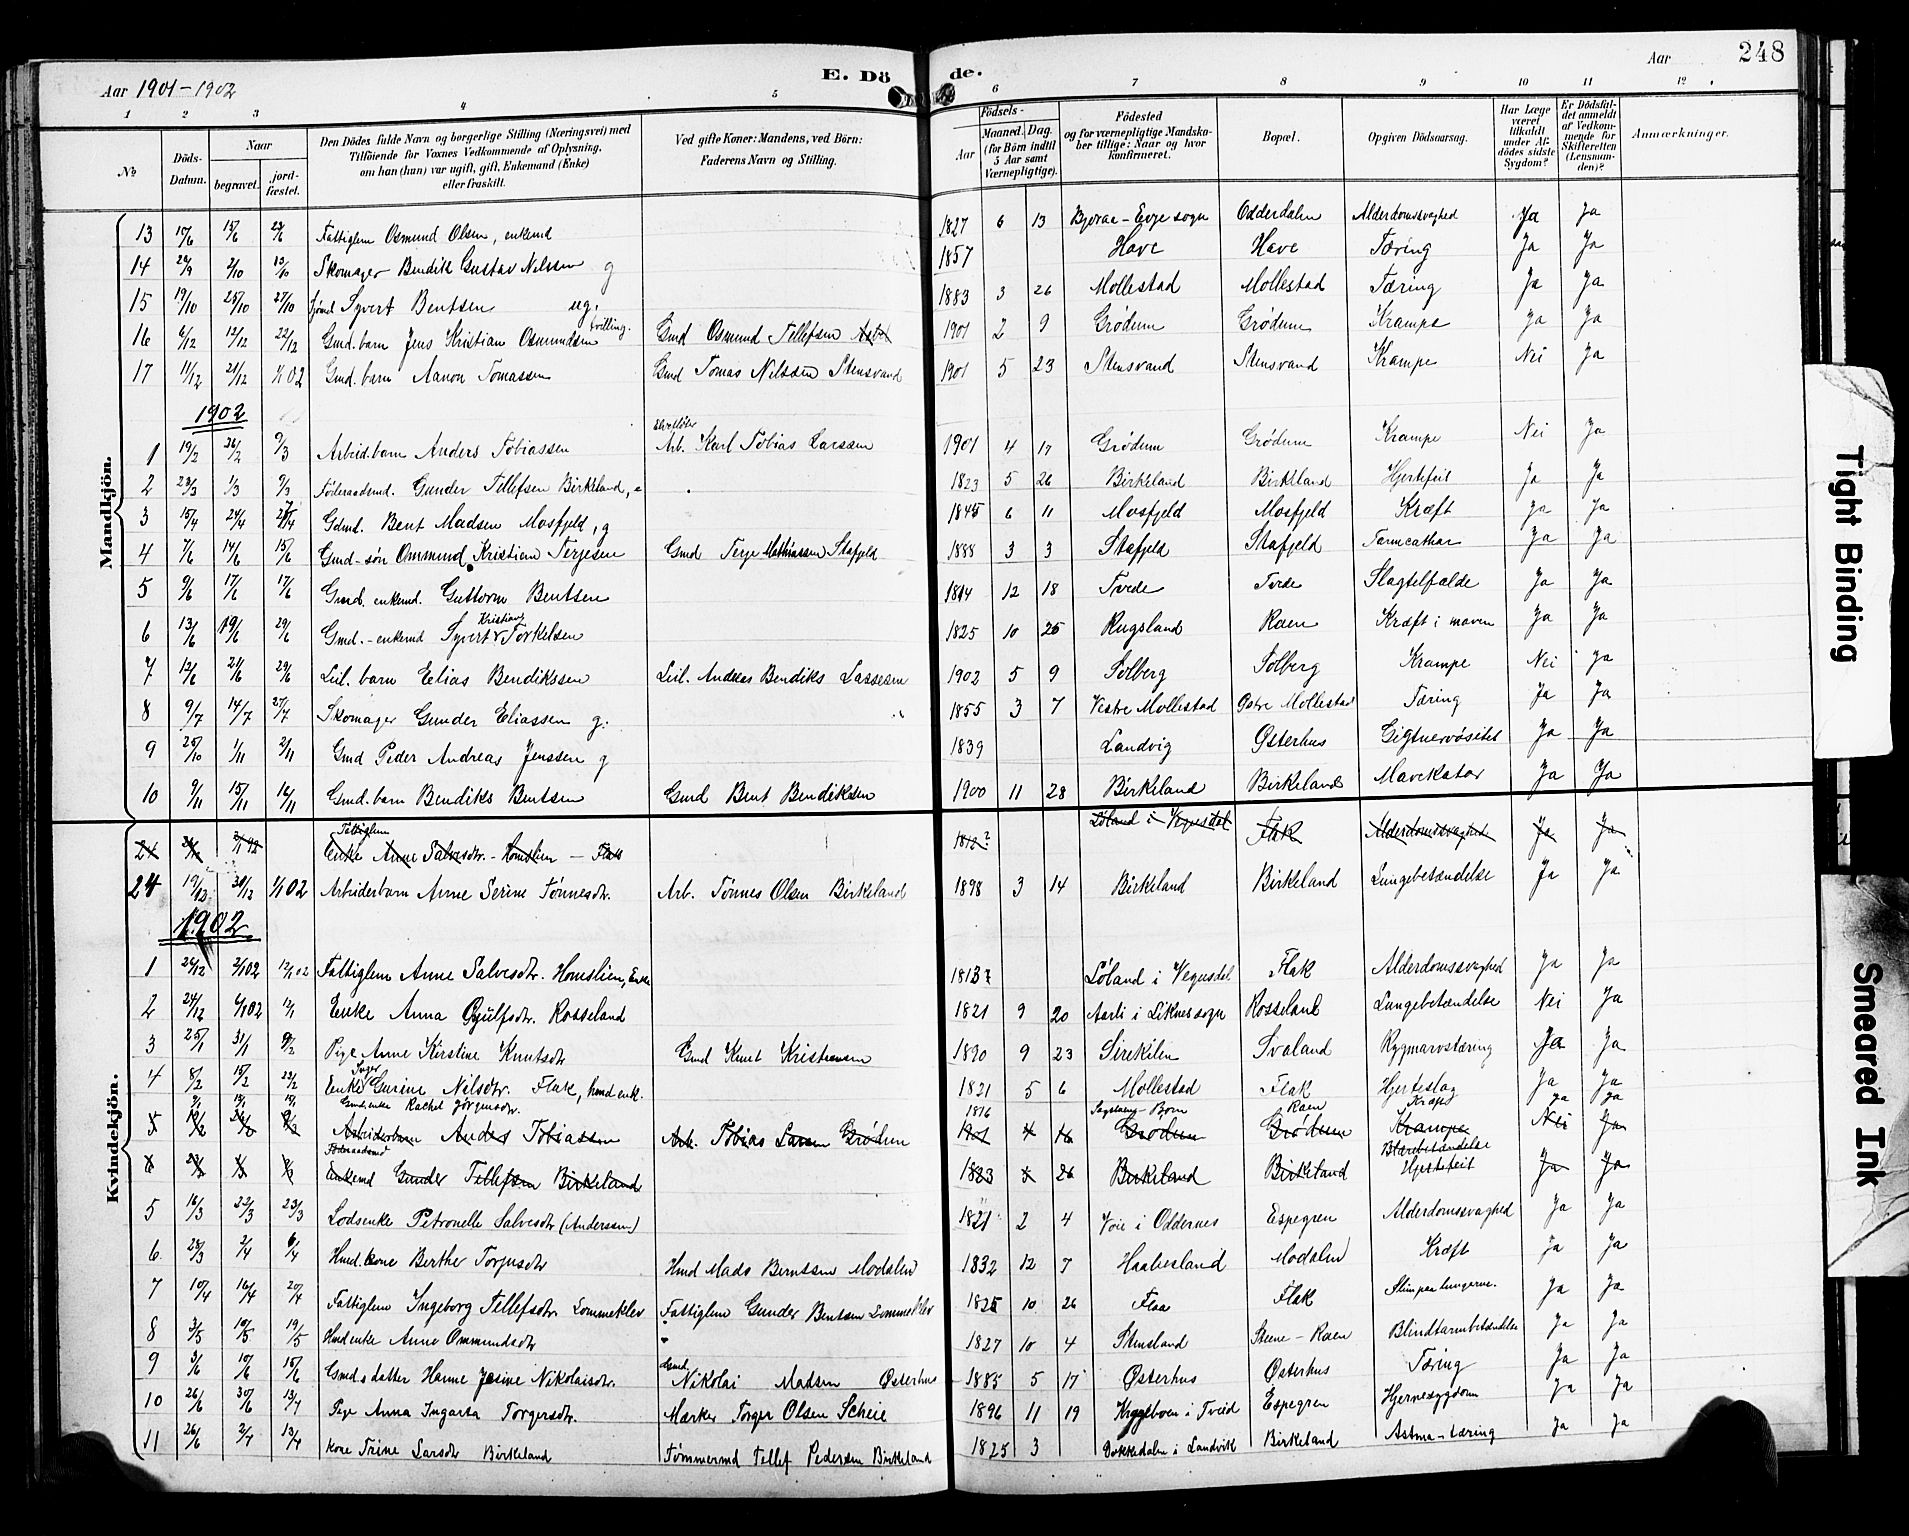 Aar 1901-1902 E. Döde. Aar 248
1 2 3 4 5 6 7 8 9 10 11 12
No Döds-Datum. Naar begravet. jord-fæstet. Den Dödes fulde Navn og borgerlige Stilling (Næringsvei) med Tilföiende for Voxnes Vedkommende af Oplysning, om han (hun) var ugift, gift, Enkemand (Enke) eller fraskilt. Ved gifte Koner: Mandens, ved Börn: Faderens Navn og Stilling. Födsels- Aar Maaned. Dag. (for Börn indtil 5 Aar samt Værnepligtige). Födested og for værnepligtige Mandskaber tillige: Naar og hvor konfirmeret. Bopæl. Opgiven Dödsaarsag. Har Læge været tilkaldt under Afdödes sidste Sygdom? Er Dödsfaldet anmeldt af Vedkommende for Skifteretten (Lensmanden)? Anmærkninger.
Mandkjön.
13 Fattiglem Osmund Olsen, enkemd 1827 6 13 Bjorae - Evje sogn Odderdalen Alderdomssvaghed Ja Ja
14 2/10 Skomager Bendik Gustav Nilssen g 1857 Have Have Tæring Ja Ja
15 19/10 25/10 27/10 Syvert Bentsen ug. 1883 3 26 Mollestad Mollestad Tæring Ja Ja
16 6/12 12/12 22/12 Gmd. barn Jens Kristian Osmundsen tvilling. Gmd Osmund Tellefsen 1901 2 9 Grödum Grödum Krampe Ja Ja
17 11/12 21/12 1/1 02 Gmd. barn Aanon Tomassen Gmd Tomas Nilssen Stensvand 1901 5 23 Stensvand Stensvand Krampe Nei Ja
1902
1 19/2 26/2 9/3 Arbeid.barn Anders Tobiassen Arb. Karl Tobias Larssen 1901 4 17 Grödum Grödum Krampe Nei Ja
2 1/3 9/3 Föderaadsmd. Gunder Tellefsen Birkeland, e 1823 5 26 Birkeland Birkeland Hjertefeil Ja Ja
3 15/4 24/4 27/4 Gdmd. Bent Madsen Mosfjeld, g 1845 6 11 Mosfjeld Mosfjeld Kræft Ja Ja
4 7/6 14/6 15/6 Gmd-sön Ommund Kristian Terjesen Gmd Terje Mathiassen Stafjeld 1888 3 3 Stafjeld Stafjeld Tarmcathar Ja Ja
5 9/6 17/6 17/6 Gmd. enkemd. Guttorm Bentsen 1814 12 18 Tvede Tvede Slagtelfælde Ja Ja
6 13/6 19/6 29/6 Gmd.-enkemd Syvert Kristian Torkelsen 1825 10 25 Rugsland Raen Kræft i maven Ja Ja
7 12/6 21/6 29/6 Leil. barn Elias Bendikssen Leil. Andreas Bendiks Lassesen 1902 5 9 Solberg Solberg Krampe Nei Ja
8 9/7 14/7 27/7 Skomager Gunder Eliassen g. 1855 3 7 Vestre Mollestad Östre Mollestad Tæring Ja Ja
9 25/10 1/11 2/11 Gmd Peder Andreas Jenssen g 1839 Landvig Østerhus Gigtnervösitet Ja Ja
10 9/11 15/11 16/11 Gmd. barn Bendiks Bentsen Gmd Bent Bendiksen 1900 11 28 Birkeland Birkeland Mavekatar Ja Ja
Kvindekjön.
24 Fattiglem Enke Anne Salvesdtr. - Homslien - Flak 1812? Löland i Vegusdal Flak Alderdomssvaghed Ja Ja
24 19/12 30/12 1/1 02 Arbeiderbarn Anne Serine Tönnesdtr. Arb. Tönnes Olsen Birkeland 1898 3 14 Birkeland Birkeland Lungebetændelse Ja Ja
1902
1 24/12 2/1 02 12/1 02 Fattiglem Anne Salvesdtr. Homslien, Enke 1813? Löland i Vegusdal Flak Alderdomssvaghed Ja Ja
2 24/12 6/1 02 12/1 Enke Anna Gjulfsdtr. Rosseland 1821 9 20 Aarli i Liknes sogn Rosseland Lungebetændelse Nei Ja
3 25/1 31/1 9/2 Pige Anne Kirstine Knutsdtr Gmd Knut Kristiansen 1890 9 23 Sirekilen Svaland Rygmarvstæring Ja Ja
4 8/2 15/2 23/2 Enke Inger Gurine Nilsdtr. Flak, hmd enk. 1821 5 6 Mollestad Flak Hjerteslag Ja Ja
Gmd.enke Rachel Jörgensdtr. 1816 Born Raen Kræft Ja Ja
5 19/2 26/2 9/3 Arbeiderbarn Andes Tobiassen Arb. Tobias Larsen Grödum 1901 4 16 Grödum Grödum Krampe Nei Ja
Blærebetændelse
6 1/3 9/3 Föderaadsmd Enkemd Gunder Tellefsen Birkeland 1823 5 26 Birkeland Birkeland Hjertefeil Ja Ja
5 16/3 22/3 23/3 Lodsenke Petronelle Salvesdtr (Anderssen) 1821 2 4 Voie i Oddernes Espegren Alderdomssvaghed Ja Ja
6 28/3 2/4 6/4 Hmd. kone Berthe Torjusdtr Hmd Mads Berntssen Modalen 1832 12 7 Haabesland Modalen Kræft Ja Ja
7 10/4 16/4 20/4 Fattiglem Ingeborg Tellefsdtr Lommeklev Fattiglem Gunder Bentsen Lommeklev 1825 10 26 Flaa Flak Slim paa lungerne. Ja Ja
8 3/5 10/5 19/5 Hmd enke Anne Ommundsdtr 1827 10 4 Stensland Steene - Raen Blindtarmbetændelse Ja Ja
9 3/6 10/6 15/6 Gmds datter Hanne Josine Nikolaisdtr. Gmd Nikolai Madsen Østerhus 1885 5 17 Østerhus Østerhus Tæring Ja Ja
10 26/6 30/6 13/7 Pige Anna Ingarta Torgersdtr. Mærker Torger Olsen Scheie 1896 11 19 i Tveid Espegren Hjernesygdom Ja Ja
11 26/6 2/7 13/7 Kone Trine Larsdtr Birkeland Tömmermd Tellef Pedersen Birkeland 1825 3 Dokkedalen i Landvik Birkeland Astma-tæring Ja Ja
Tight Binding
Smeared Ink